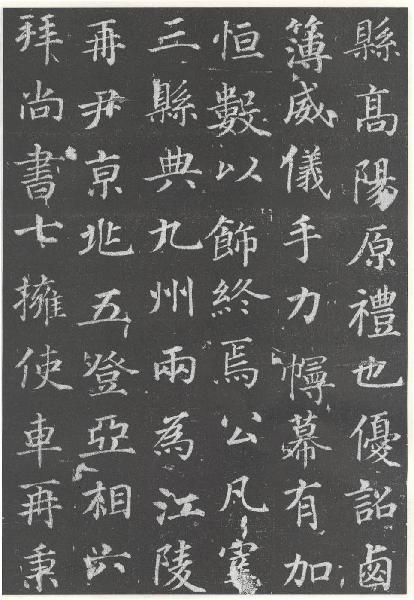 縣高陽原禮也優詔鹵
簿威儀手力幰幕有加
恒數以飾終焉公凡宰
三縣典九州兩為江陵
再尹京兆五登亞相六
拜尚書七擁使車再秉